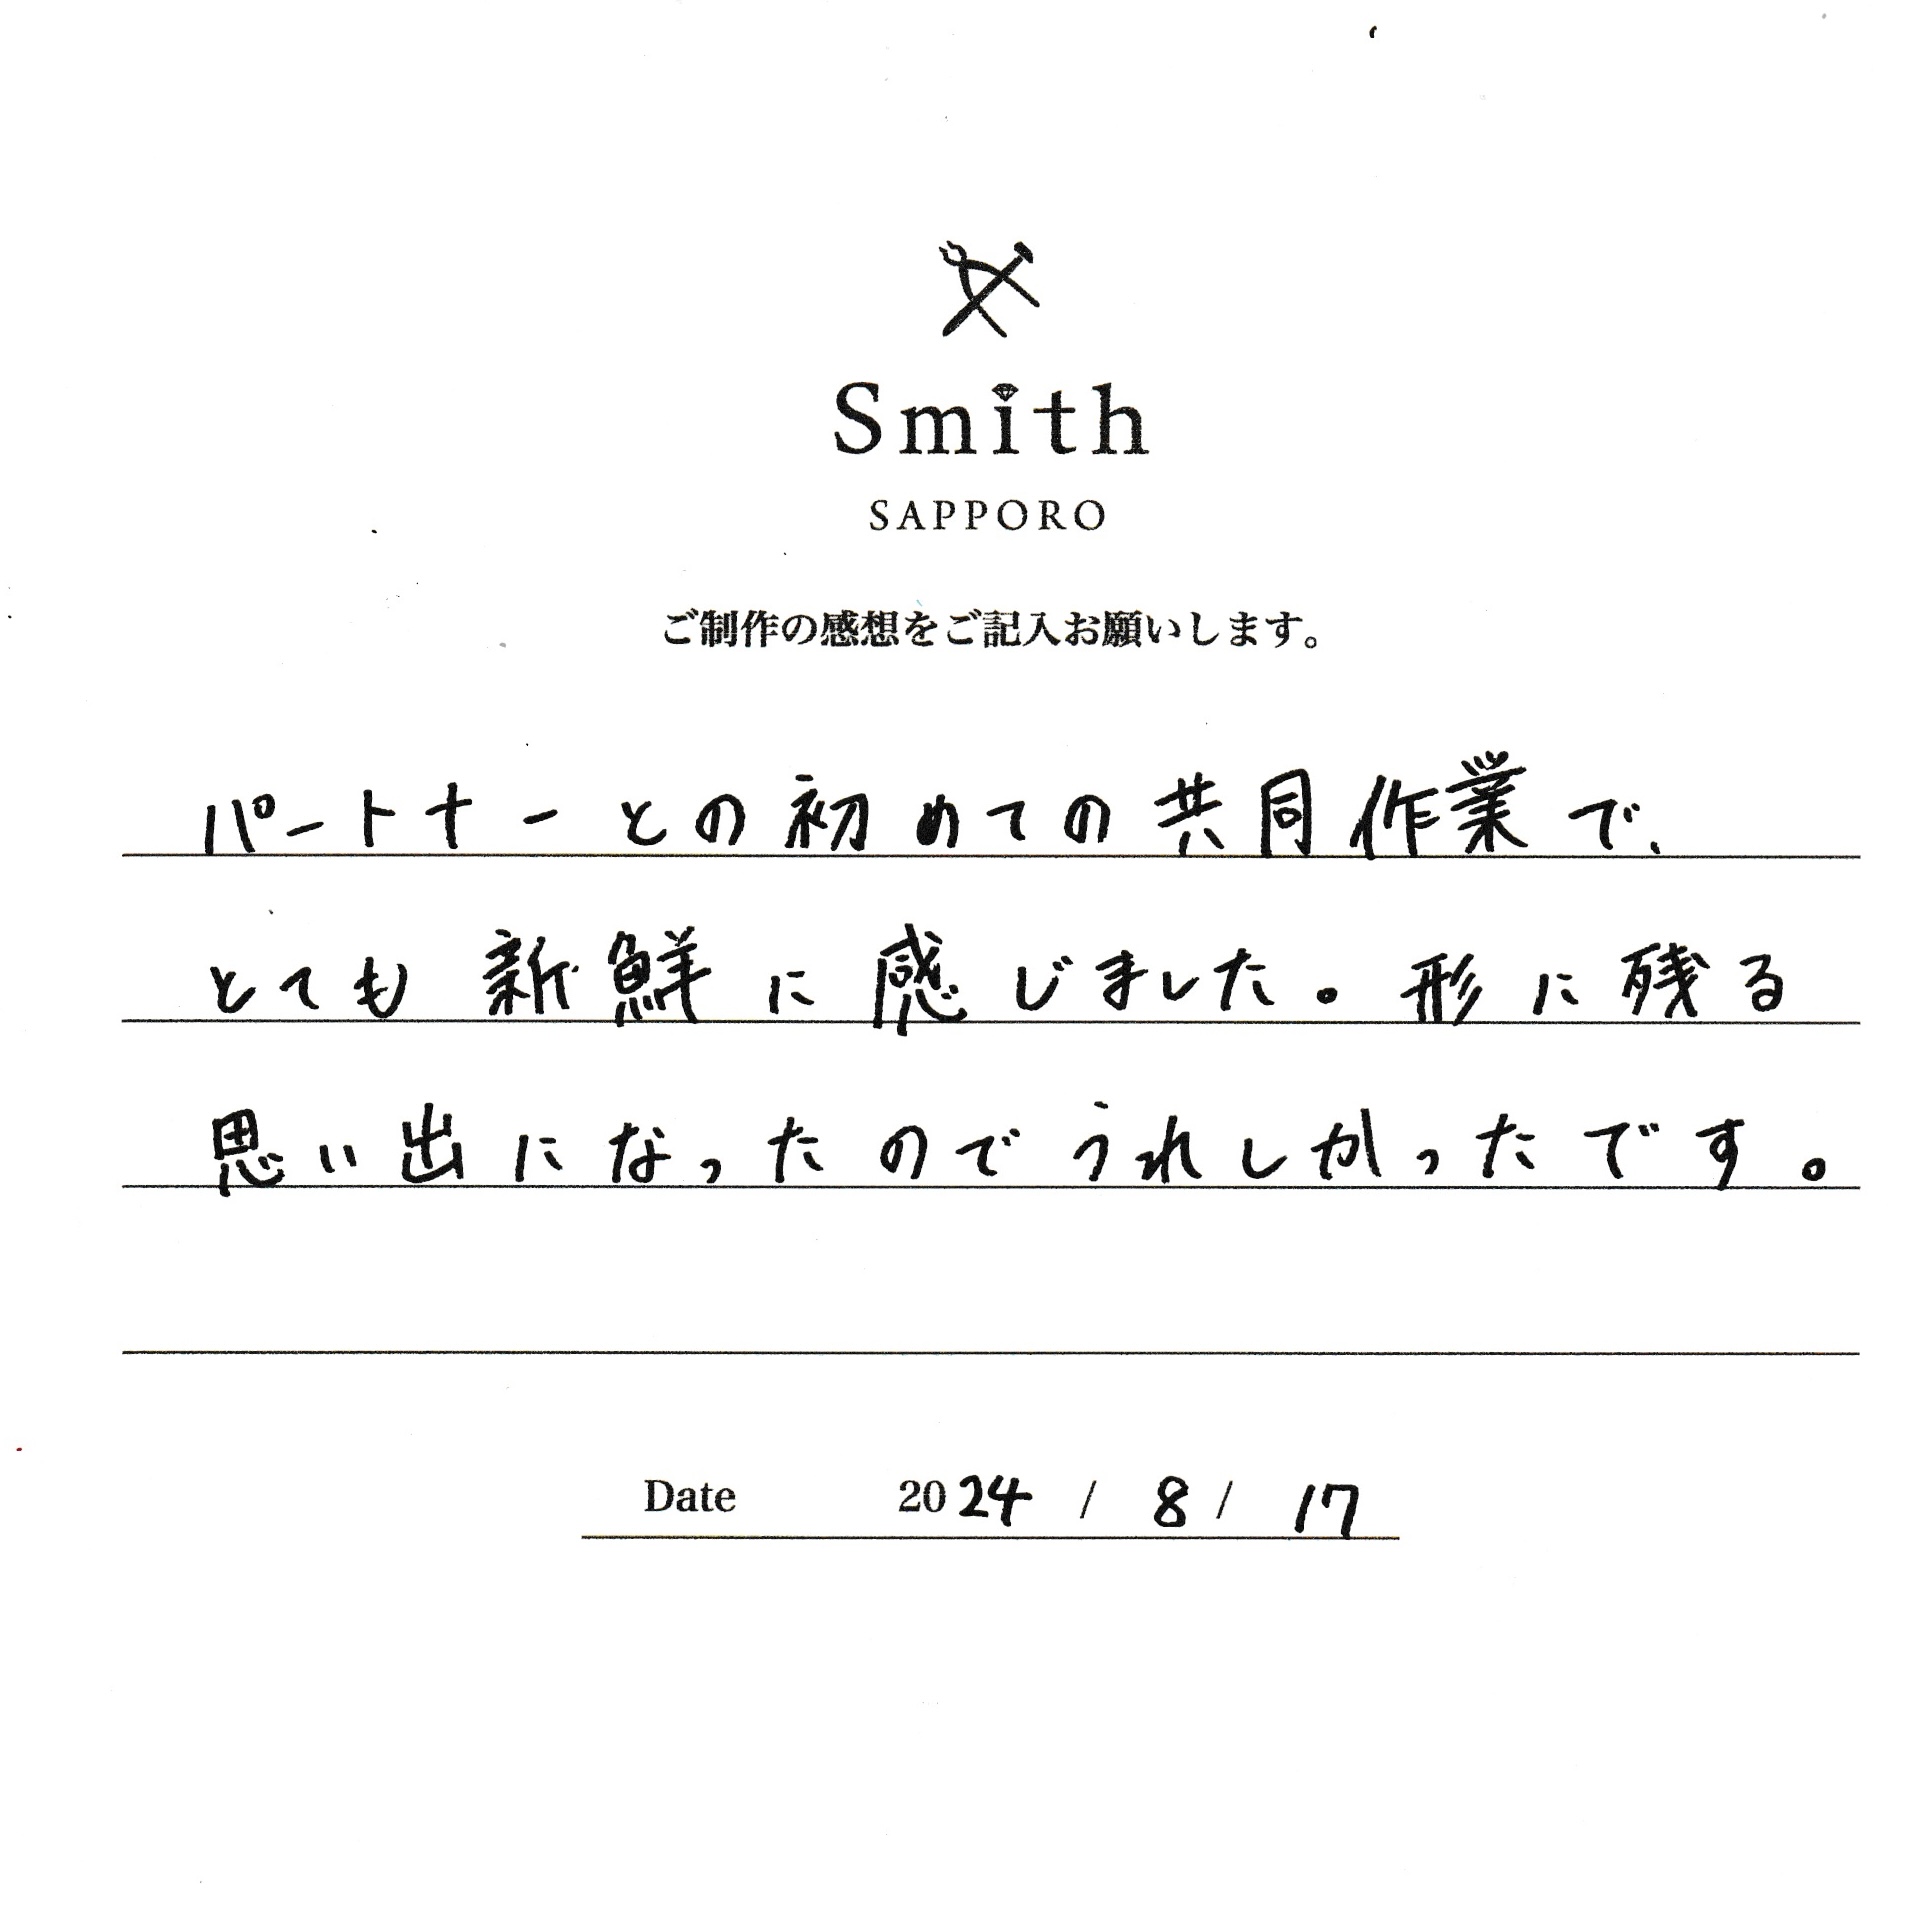 Smith
SAPPORO
ご制作の感想をご記入お願いします。
パートナーとの初めての共同作業で、
とても新鮮に感じました。形に残る
思い出になったのでうれしかったです。
Date 2024 / 8 / 17